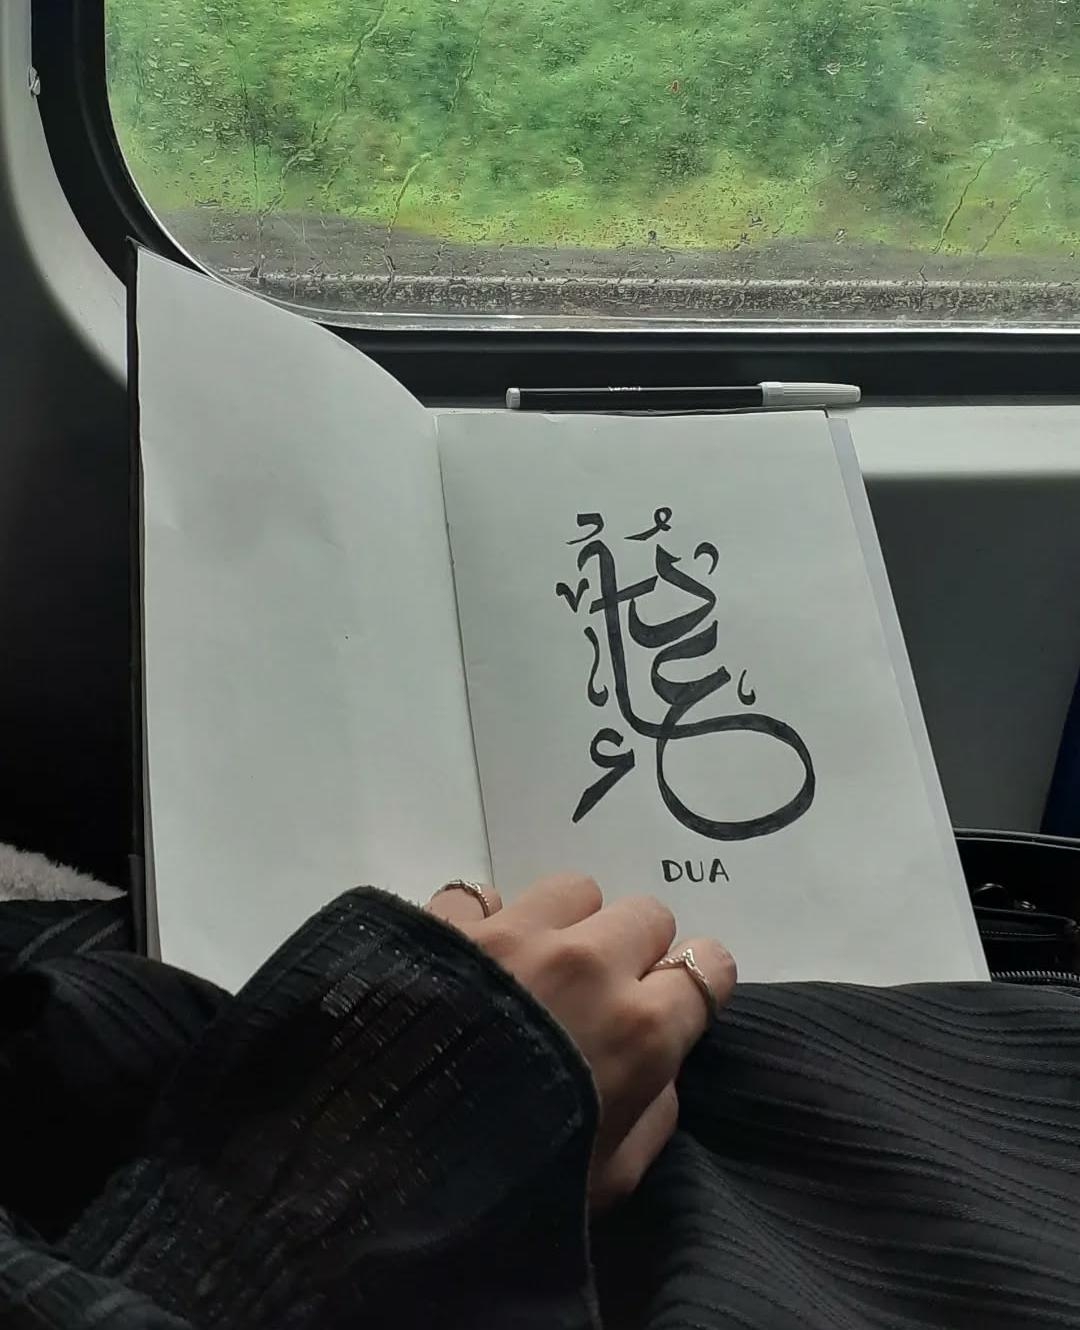 دُعَاء
DUA